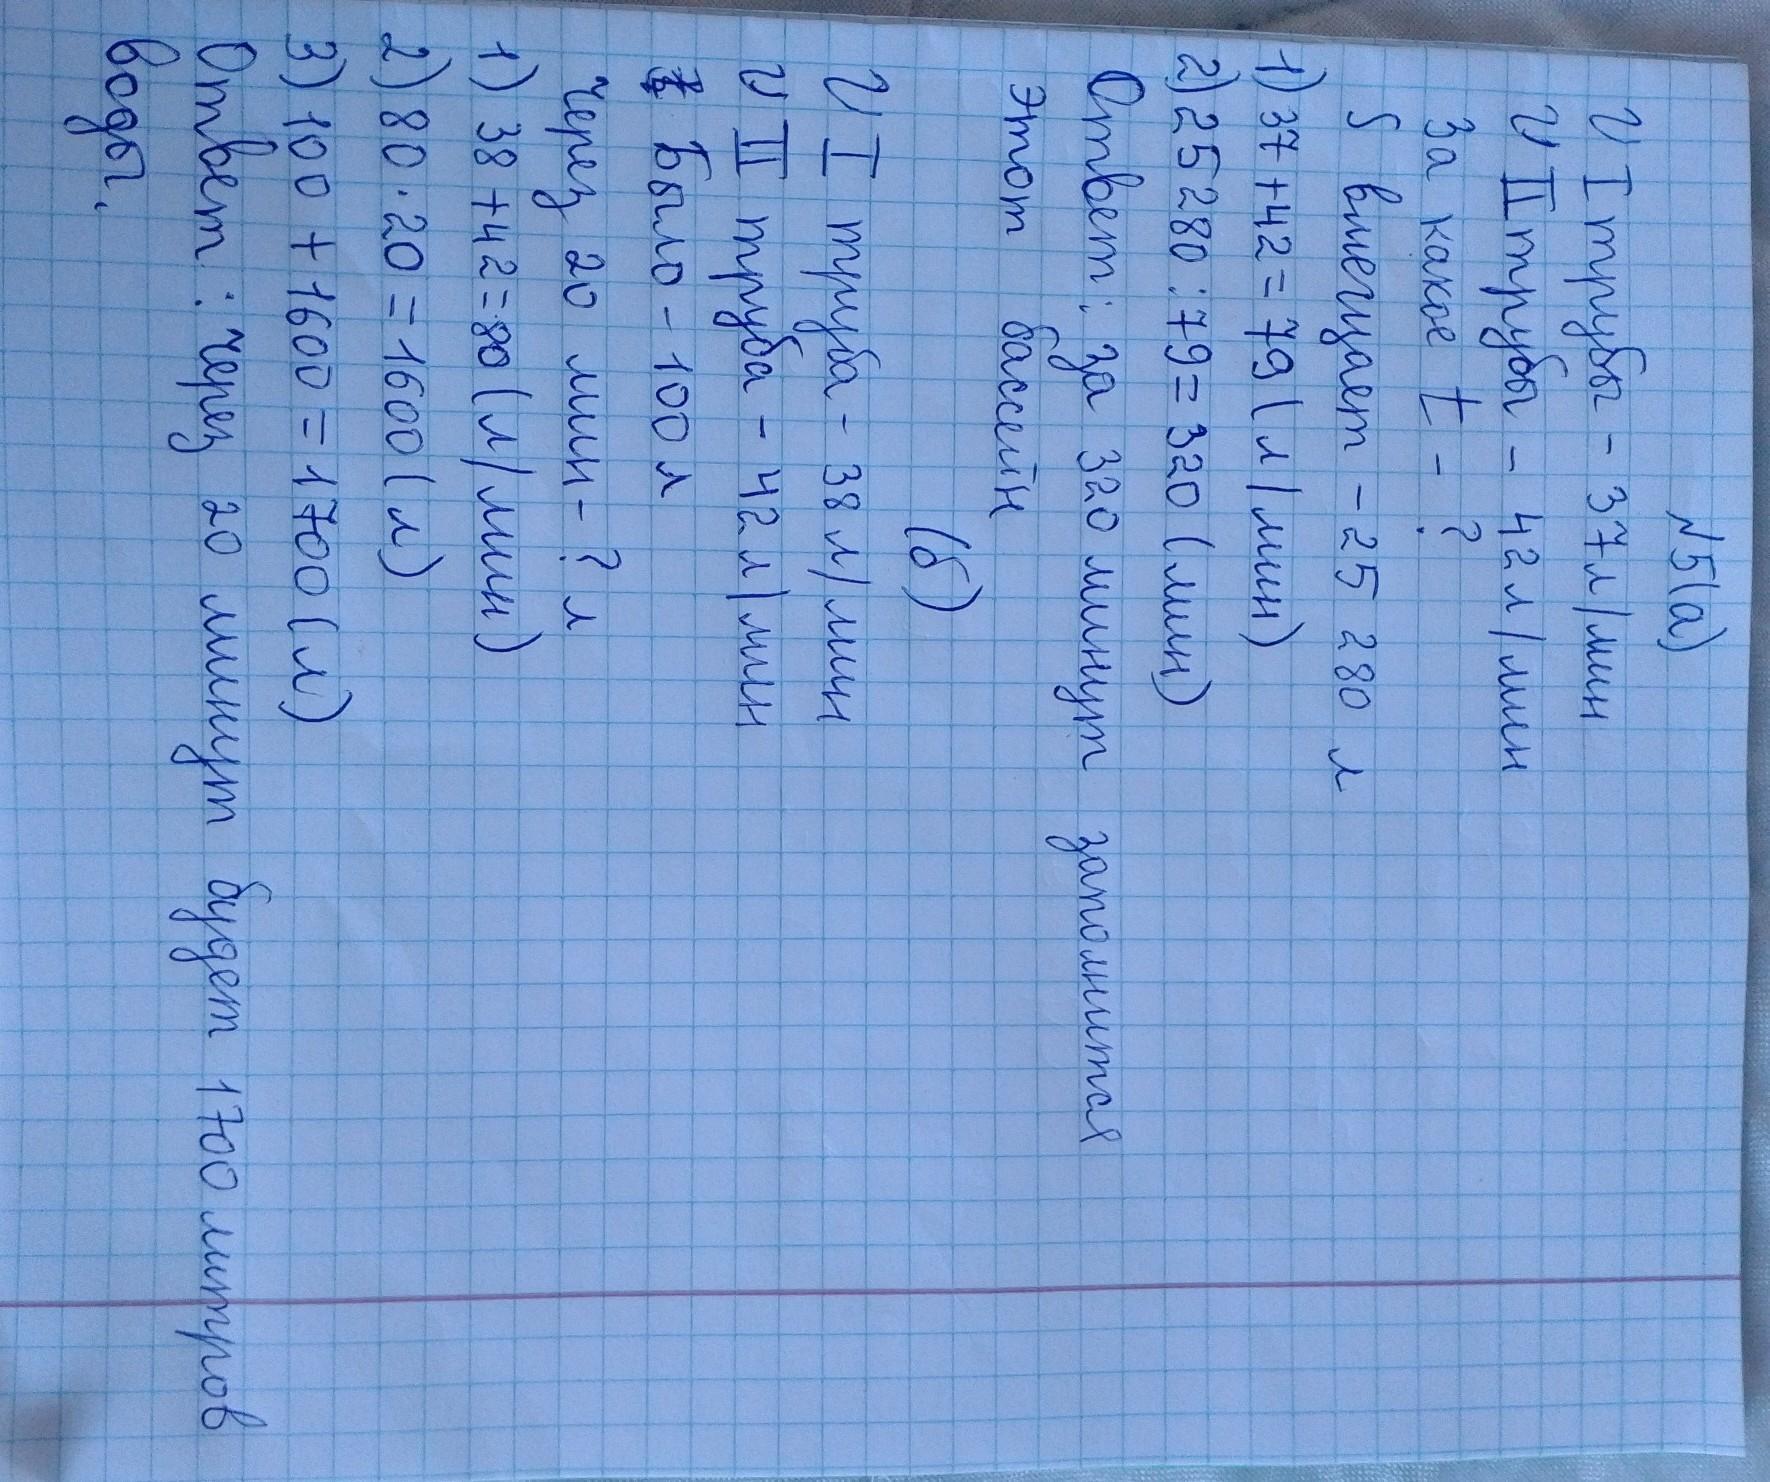 №5(а)
V I трубы - 37 л/мин
V II трубы - 42 л/мин
За какое t - ?
S вмещает - 25 280 л
1) 37+42=79 (л/мин)
2) 25 280:79=320 (мин)
Ответ: за 320 минут заполнится
этот бассейн
(б)
V I труба - 38 л/мин
V II труба - 42 л/мин
Было - 100 л
Через 20 мин - ? л
1) 38+42=80 (л/мин)
2) 80·20=1600 (л)
3) 100+1600=1700 (л)
Ответ: через 20 минут будет 1700 литров
воды.